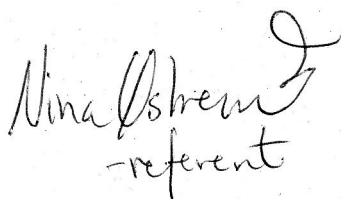 Nina Østrem
-referent